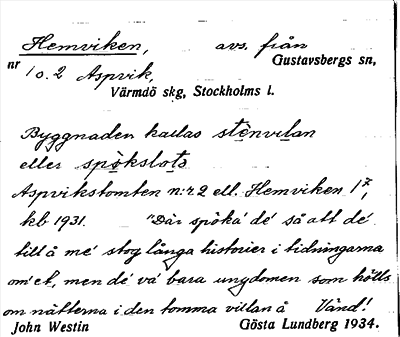 Hemviken, avs. från
nr 1 o. 2 Aspvik, Gustavsbergs sn,
Värmdö skg, Stockholms l.
Byggnaden kallas stènvilan
eller spökslots
Aspvikstomten n:r 2 ell. Hemviken 1⁷,
kb 1931. "Där spöka' dé så att dé
till å mé stog långa historier i tidningarna
om'et, men dé va' bara ungdomen som hölls
om nätterna i den tomma villan å Vänd!
John Westin Gösta Lundberg 1934.